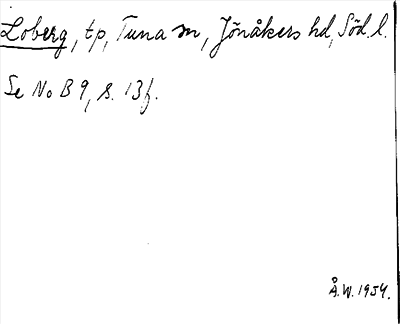 Loberg, tp, Tuna sn, Jönåkers hd, Söd. l.
Se No B 9, s. 13f.
Å.W. 1954.